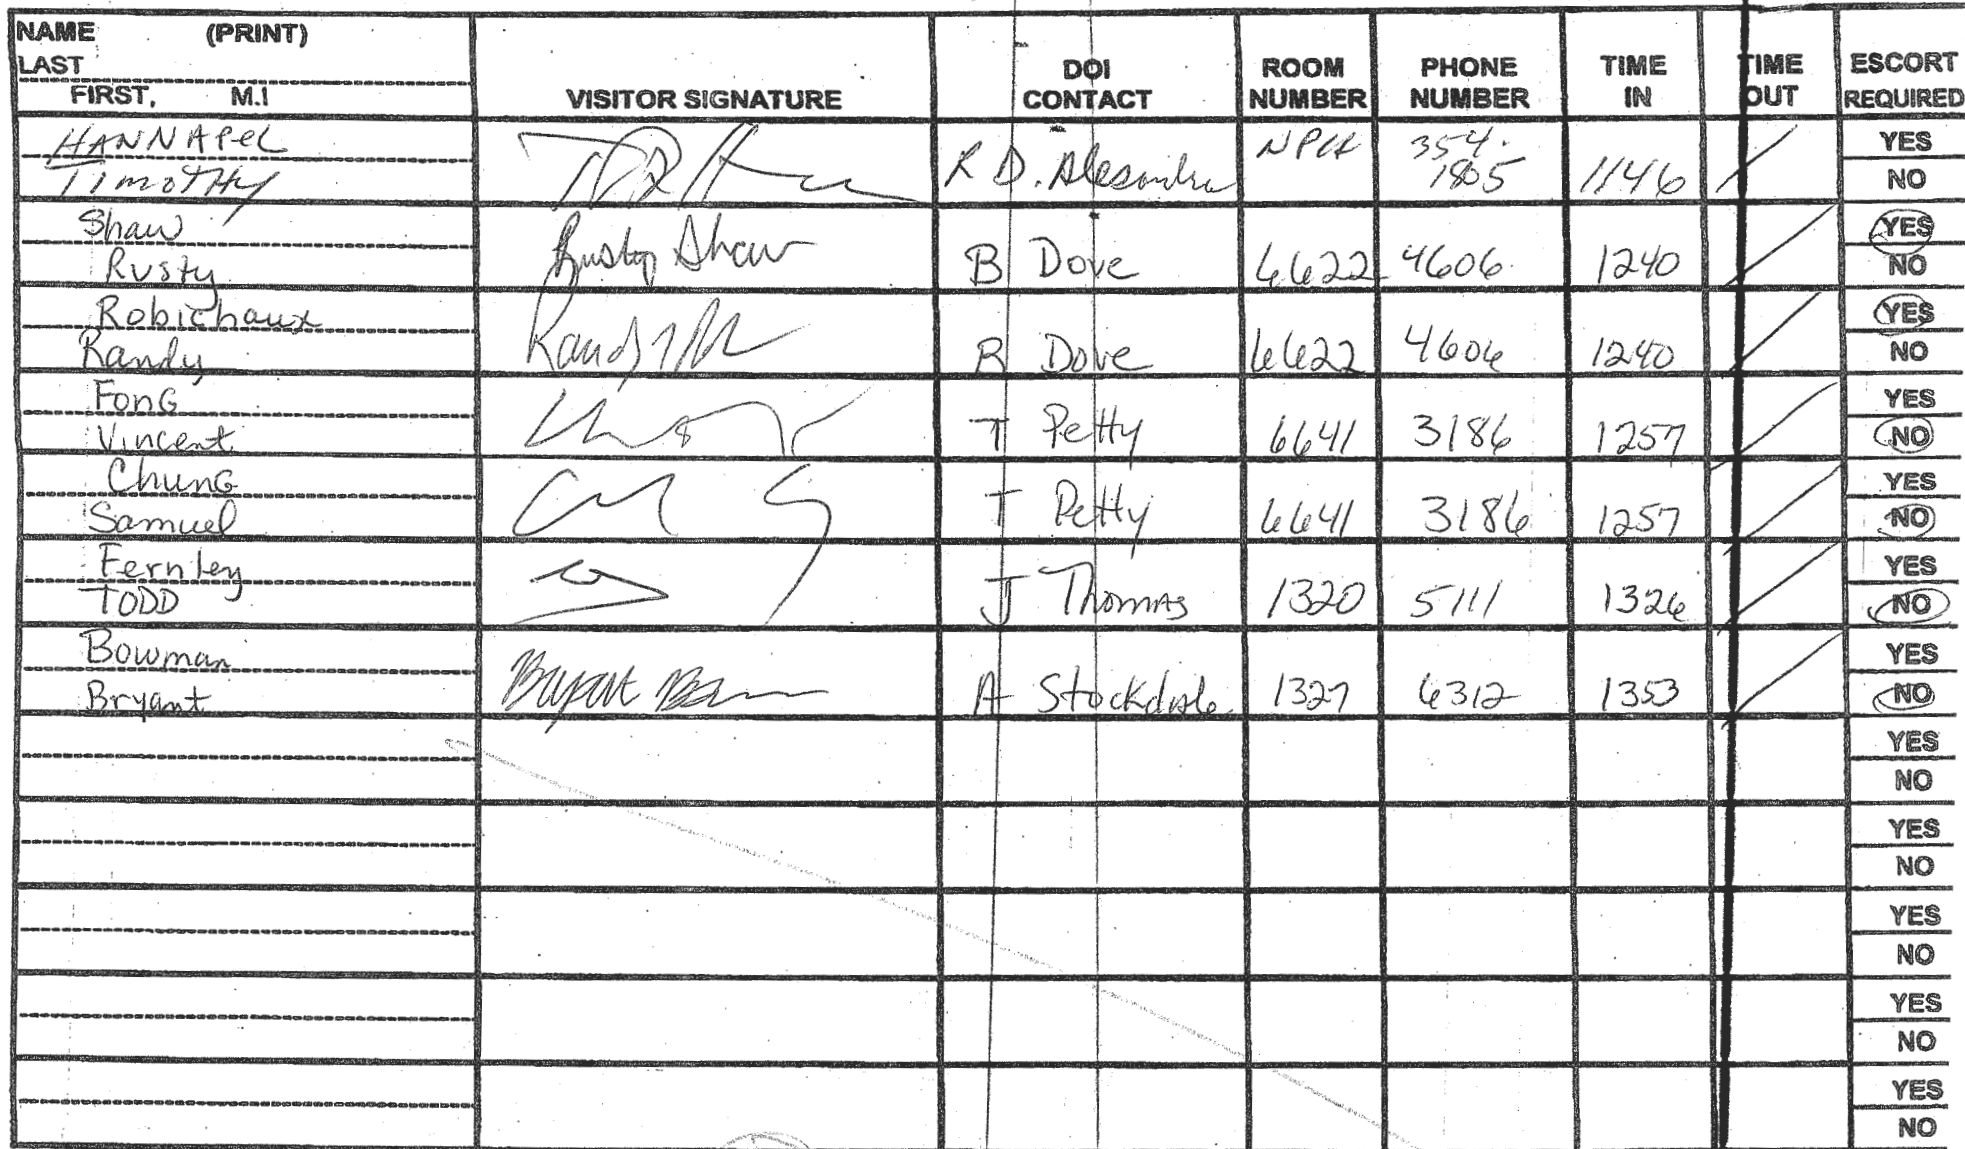 NAME (PRINT)
LAST
FIRST, M.I
VISITOR SIGNATURE
DOI CONTACT
ROOM NUMBER
PHONE NUMBER
TIME IN
TIME OUT
ESCORT REQUIRED
HANNAPEL
Timothy
R D. 354. 1805 1146 YES NO
Shaw
Rusty
Rusty Shaw B Dove 6622 4606 1240 YES NO
Robichaux
Randy
Randy R Dove 6622 4606 1240 YES NO
Fong
Vincent
T Petty 6641 3186 1257 YES NO
Chung
Samuel
T Petty 6641 3186 1257 YES NO
Fernley
TODD
J Thomas 1320 5111 1326 YES NO
Bowman
Bryant
Bryant A Stockdale 1327 6312 1353 YES NO
YES
NO
YES
NO
YES
NO
YES
NO
YES
NO